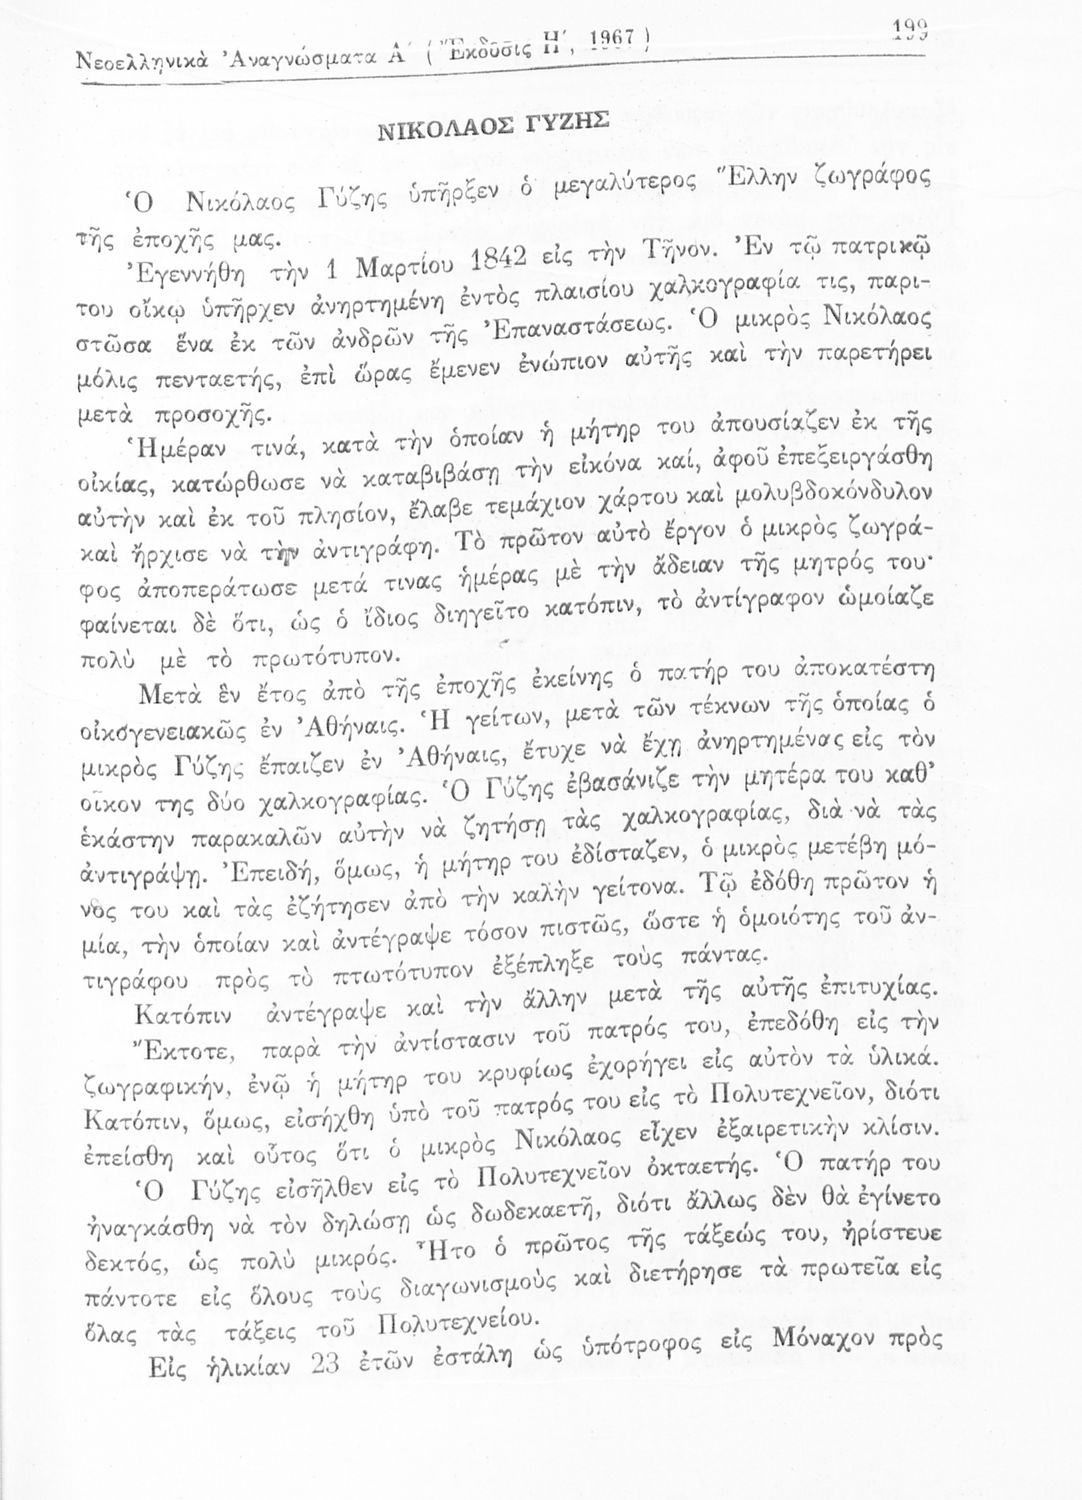 Νεοελληνικὰ Ἀναγνώσματα Α΄ ( Ἔκδοσις Η΄, 1967 )
199
ΝΙΚΟΛΑΟΣ ΓΥΖΗΣ
Ὁ Νικόλαος Γύζης ὑπῆρξεν ὁ μεγαλύτερος Ἕλλην ζωγράφος
τῆς ἐποχῆς μας.
Ἐγεννήθη τὴν 1 Μαρτίου 1842 εἰς τὴν Τῆνον. Ἐν τῷ πατρικῷ
του οἴκῳ ὑπῆρχεν ἀνηρτημένη ἐντὸς πλαισίου χαλκογραφία τις, παρι-
στῶσα ἕνα ἐκ τῶν ἀνδρῶν τῆς Ἐπαναστάσεως. Ὁ μικρὸς Νικόλαος
μόλις πενταετής, ἐπὶ ὥρας ἔμενεν ἐνώπιον αὐτῆς καὶ τὴν παρετήρει
μετὰ προσοχῆς.
Ἡμέραν τινά, κατὰ τὴν ὁποίαν ἡ μήτηρ του ἀπουσίαζεν ἐκ τῆς
οἰκίας, κατώρθωσε νὰ καταβιβάσῃ τὴν εἰκόνα καί, ἀφοῦ ἐπεξειργάσθη
αὐτὴν καὶ ἐκ τοῦ πλησίον, ἔλαβε τεμάχιον χάρτου καὶ μολυβδοκόνδυλον
καὶ ἤρχισε νὰ τὴν ἀντιγράφῃ. Τὸ πρῶτον αὐτὸ ἔργον ὁ μικρὸς ζωγρά-
φος ἀποπεράτωσε μετά τινας ἡμέρας μὲ τὴν ἄδειαν τῆς μητρός του·
φαίνεται δὲ ὅτι, ὡς ὁ ἴδιος διηγεῖτο κατόπιν, τὸ ἀντίγραφον ὡμοίαζε
πολὺ μὲ τὸ πρωτότυπον.
Μετὰ ἓν ἔτος ἀπὸ τῆς ἐποχῆς ἐκείνης ὁ πατήρ του ἀποκατέστη
οἰκογενειακῶς ἐν Ἀθήναις. Ἡ γείτων, μετὰ τῶν τέκνων τῆς ὁποίας ὁ
μικρὸς Γύζης ἔπαιζεν ἐν Ἀθήναις, ἔτυχε νὰ ἔχῃ ἀνηρτημένας εἰς τὸν
οἶκον της δύο χαλκογραφίας. Ὁ Γύζης ἐβασάνιζε τὴν μητέρα του καθ᾽
ἑκάστην παρακαλῶν αὐτὴν νὰ ζητήσῃ τὰς χαλκογραφίας, διὰ νὰ τὰς
ἀντιγράψῃ. Ἐπειδή, ὅμως, ἡ μήτηρ του ἐδίσταζεν, ὁ μικρὸς μετέβη μό-
νος του καὶ τὰς ἐζήτησεν ἀπὸ τὴν καλὴν γείτονα. Τῷ ἐδόθη πρῶτον ἡ
μία, τὴν ὁποίαν καὶ ἀντέγραψε τόσον πιστῶς, ὥστε ἡ ὁμοιότης τοῦ ἀν-
τιγράφου πρὸς τὸ πτωτότυπον ἐξέπληξε τοὺς πάντας.
Κατόπιν ἀντέγραψε καὶ τὴν ἄλλην μετὰ τῆς αὐτῆς ἐπιτυχίας.
Ἔκτοτε, παρὰ τὴν ἀντίστασιν τοῦ πατρός του, ἐπεδόθη εἰς τὴν
ζωγραφικήν, ἐνῷ ἡ μήτηρ του κρυφίως ἐχορήγει εἰς αὐτὸν τὰ ὑλικά.
Κατόπιν, ὅμως, εἰσήχθη ὑπὸ τοῦ πατρός του εἰς τὸ Πολυτεχνεῖον, διότι
ἐπείσθη καὶ οὗτος ὅτι ὁ μικρὸς Νικόλαος εἶχεν ἐξαιρετικὴν κλίσιν.
Ὁ Γύζης εἰσῆλθεν εἰς τὸ Πολυτεχνεῖον ὀκταετής. Ὁ πατήρ του
ἠναγκάσθη νὰ τὸν δηλώσῃ ὡς δωδεκαετῆ, διότι ἄλλως δὲν θὰ ἐγίνετο
δεκτός, ὡς πολὺ μικρός. Ἦτο ὁ πρῶτος τῆς τάξεώς του, ἠρίστευε
πάντοτε εἰς ὅλους τοὺς διαγωνισμοὺς καὶ διετήρησε τὰ πρωτεῖα εἰς
ὅλας τὰς τάξεις τοῦ Πολυτεχνείου.
Εἰς ἡλικίαν 23 ἐτῶν ἐστάλη ὡς ὑπότροφος εἰς Μόναχον πρὸς